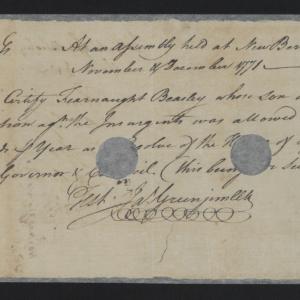 At an Assembly held at New Ber
November & December 1771
Certify Fearnaught Beasley whose son
tion agt. the Insurgents was allowed
& Year as Resolve of the
Governor & Council (this being
Test Jas Green jun Clk